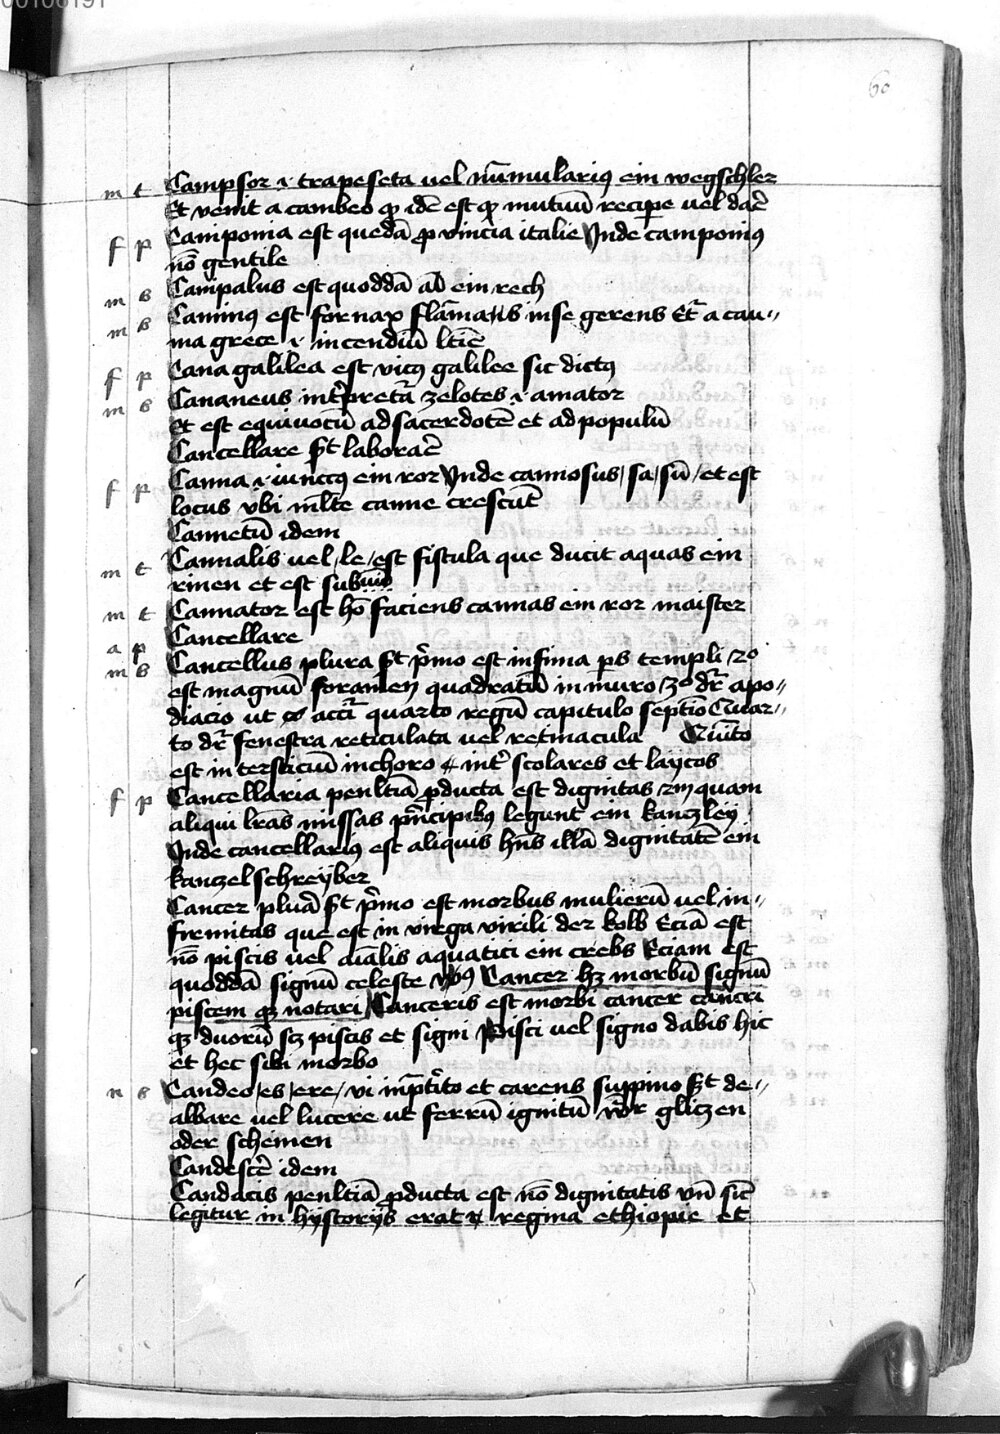 00106191
60
m t Campsor .i. trapeseta uel nūmularius ein wegschler
Et venit a cambeo qd idē est qd mutuū recipe uel daē
f p Camponia est quedā ꝓvincia italie Inde camponius
nō gentile
m s Campalus est quoddā aīal ein rech
m s Caminus est fornax flāmaʒs in se gerens Et̄ a cau-
ma grece .i. incendiū ltīe
f p Cana galilea est vicus galilee sic dictus
m s Cananeus int̄pretat̄ zelotes .i. amator
Et est equivocū ad sacerdotē et ad populū
Cancellare st̄ laboraē
f p Canna .i. iunccus ein ror Inde cannosus / sa / sū / et est
locus vbi ml̄te canne crescūt
Cannetū idem
m t Cannalis vel / le / est fistula que ducit aquas ein
rinen et est sub
m t Cannator est hō faciens cannas ein ror maister
a p Cancellare
m s Cancellus plura st̄ pͥmo est infima ps templi 2o
est magnū foramen quadratū in muro 3o dr̄ apo-
diacio ut accit̄ quarto regū capitulo septīo Quar-
to dr̄ fenestra reticulata uel retinacula Quīto
est intersticiū in choro int̄ scolares et laycos
f p Cancellaria penl̄tia ꝓducta est dignitas in quam
aliqui lr̄as missas pͥncipibus legunt ein kanczley
Inde cancellarius est aliquis hn̄s illā dignitatē ein
kanczelschreyber
Cancer plurā st̄ pͥmo est morbus mulierū uel in-
firmitas que est in virga virili der kolb Eciā est
nō piscis vel aīalis aquatici ein crebs Eciam est
quoddā signū celeste vsus Cancer hʒ morbū signū
piscem qʒ notari Canceris est morbi cancer cancri
qʒ duorū scʒ piscis et signi Pisci uel signo dabis hic
et hec sibi morbo
n s Candeo / es / ere / vi in p̄tito et carens suppino st̄ de-
albare uel lucere ut ferrū ignitū vl̄r gliczen
oder scheinen
Candescē idem
Candacis penl̄tia ꝓducta est nō dignitatis vn̄ sic̄
legitur in hystorijs erat regina ethiopie et